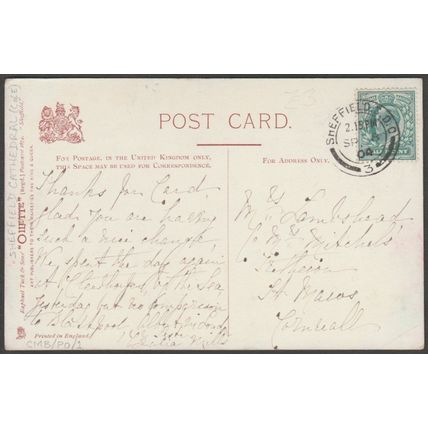 POST CARD.
FOR POSTAGE, IN THE UNITED KINGDOM ONLY,
THIS SPACE MAY BE USED FOR CORRESPONDENCE.
FOR ADDRESS ONLY.
SHEFFIELD
2.15 PM
SP
04
3
Thanks for Card,
glad you are having
such a nice change,
We spent the day again
at Cleethorpes by the Sea
yesterday but no comparison
to Blackpool
Mills
Mrs Lambshead
C/o Mrs Mitchell
St Mawes
Cornwall
SHEFFIELD CATHEDRAL
Raphael Tuck & Sons' "OILETTE" [Regd.] Postcard
ART PUBLISHERS TO THEIR MAJESTIES THE KING & QUEEN.
Printed in England.
CMB/PD/1